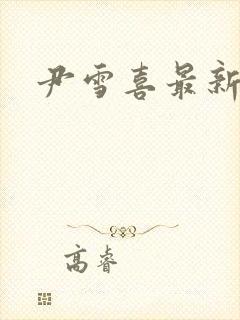 尹雪喜最新
高睿